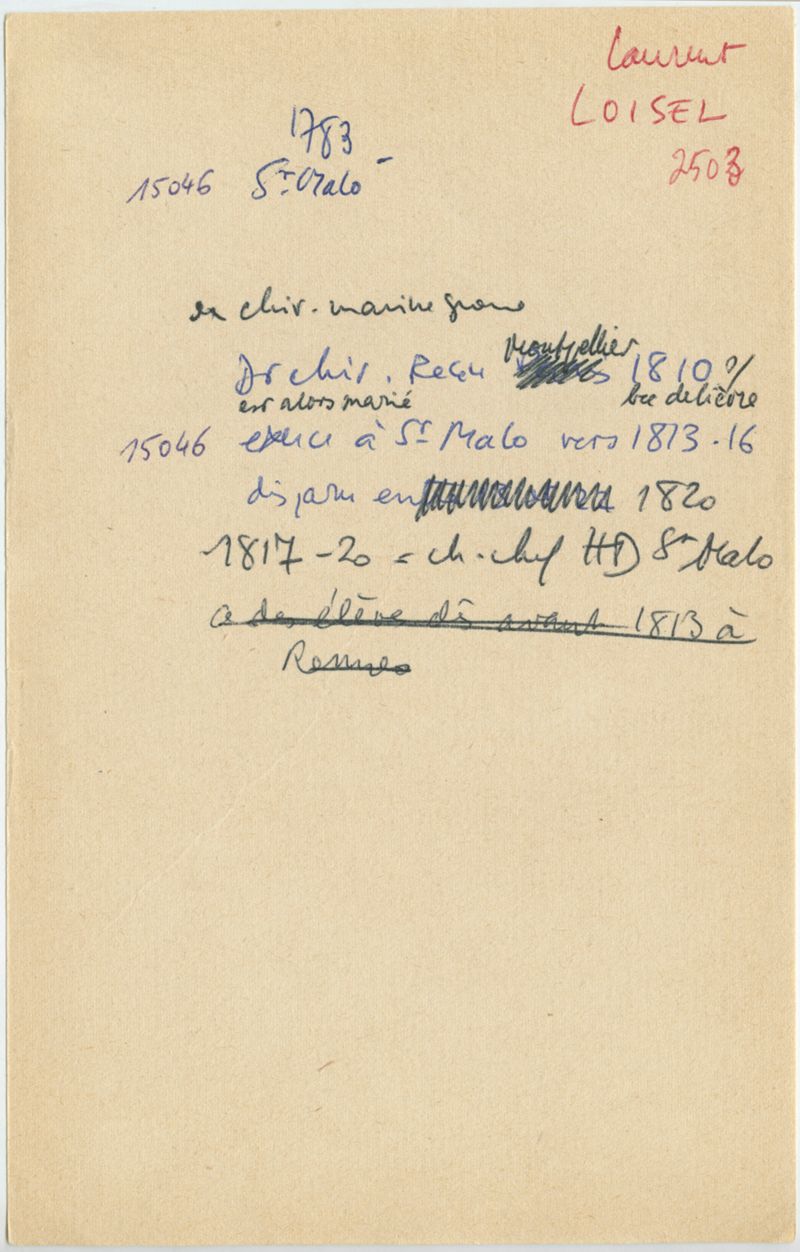 Laurent
LOISEL
2503
1783
15046 St Malo -
ex chir. marine
Montpellier
Dr chir. Reçu 1810 s/
est alors marié bec de lièvre
15046 exerce à St Malo vers 1813-16
disparu en 1820
1817-20 = ch. chef HD St Malo
a des élève dès avant 1813 à
Rennes